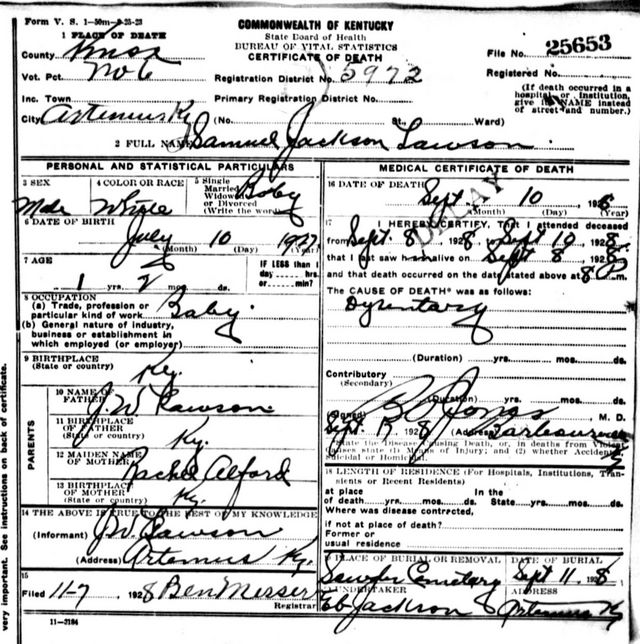 Form V. S. 1-50m-9-25-23
COMMONWEALTH OF KENTUCKY
State Board of Health
BUREAU OF VITAL STATISTICS
CERTIFICATE OF DEATH
1 PLACE OF DEATH
County Knox
Vot. Pct. No 6
Inc. Town
City Artemus Ky (No. St. Ward)
Registration District No. 5972
Primary Registration District No.
File No. 25653
Registered No.
(If death occurred in a hospital or institution, give its NAME instead of street and number.)
2 FULL NAME Samuel Jackson Lawson
DELAY
PERSONAL AND STATISTICAL PARTICULARS
3 SEX Male
4 COLOR OR RACE White
5 Single Married Widowed or Divorced (Write the word) Baby
6 DATE OF BIRTH July 10 1927
(Month) (Day) (Year)
7 AGE 1 yrs. 2 mos. ds.
IF LESS than 1 day hrs. or min?
8 OCCUPATION
(a) Trade, profession or particular kind of work Baby
(b) General nature of industry, business or establishment in which employed (or employer)
9 BIRTHPLACE (State or country) Ky.
PARENTS
10 NAME OF FATHER J. W. Lawson
11 BIRTHPLACE OF FATHER (State or country) Ky.
12 MAIDEN NAME OF MOTHER Rachel Alford
13 BIRTHPLACE OF MOTHER (State or country) Ky.
14 THE ABOVE IS TRUE TO THE BEST OF MY KNOWLEDGE
(Informant) J. W. Lawson
(Address) Artemus Ky.
15
Filed 11-7 1928 Ben Messer
Registrar
11-3184
MEDICAL CERTIFICATE OF DEATH
16 DATE OF DEATH Sept 10 1928
(Month) (Day) (Year)
17 I HEREBY CERTIFY, That I attended deceased
from Sept. 8 1928 Sept 10 1928
that I last saw h alive on Sept 8 1928
and that death occurred on the date stated above at 8 P m.
The CAUSE OF DEATH* was as follows:
Dysentary
(Duration) yrs. mos. ds.
Contributory (Secondary)
(Duration) yrs. mos. ds.
(Signed) Jones M. D.
Sept 1928 (Address) Barbourville Ky
*State the Disease Causing Death, or, in deaths from Violent causes state (1) Means of Injury; and (2) whether Accidental, Suicidal or Homicidal.
18 LENGTH OF RESIDENCE (For Hospitals, Institutions, Transients or Recent Residents)
at place of death yrs. mos. ds. In the State yrs. mos. ds.
Where was disease contrected,
if not at place of death?
Former or usual residence
19 PLACE OF BURIAL OR REMOVAL Cemetary
DATE OF BURIAL Sept 11 1928
20 UNDERTAKER Jackson
ADDRESS Artemus Ky
very important. See instructions on back of certificate.